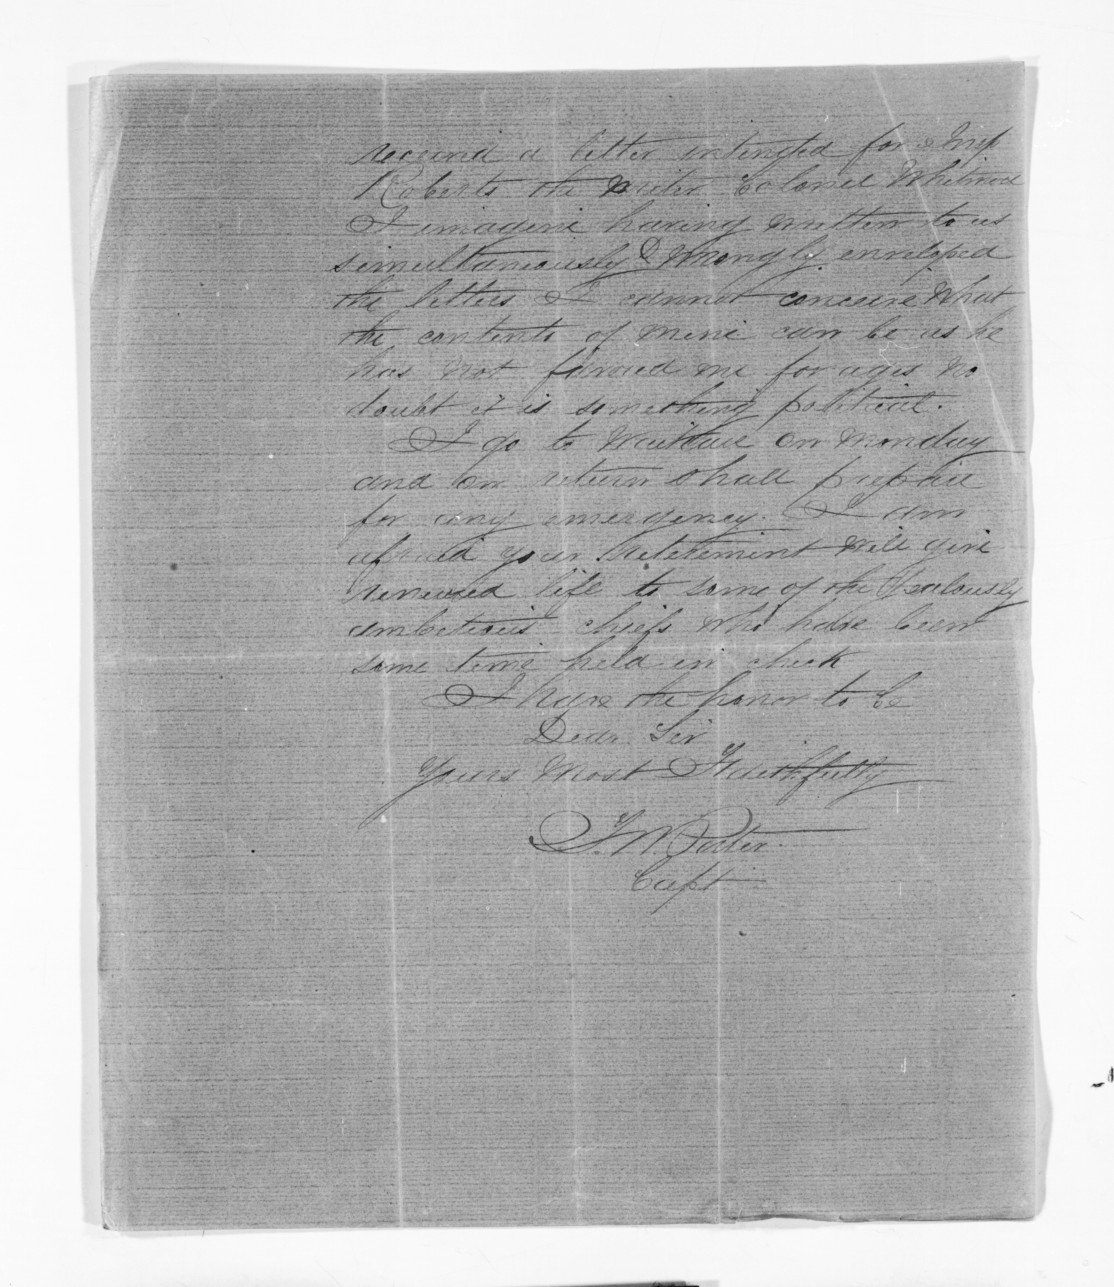 received a letter intended for Insp
Roberts the writer Colonel Whitmore
I imagine having written to us
simultaneously & wrongly enveloped
the letters I cannot conceive what
the contents of mine can be as he
has not favored me for ages no
doubt it is something political.
I go to Wairau on Monday
and on return shall prepare
for any emergency. I am
afraid your retirement will give
renewed life to some of the Jealously
ambitious chiefs who have been
some time held in check
I have the honor to be
Dear Sir
Yours Most Faithfully
F. W. Porter.
Capt